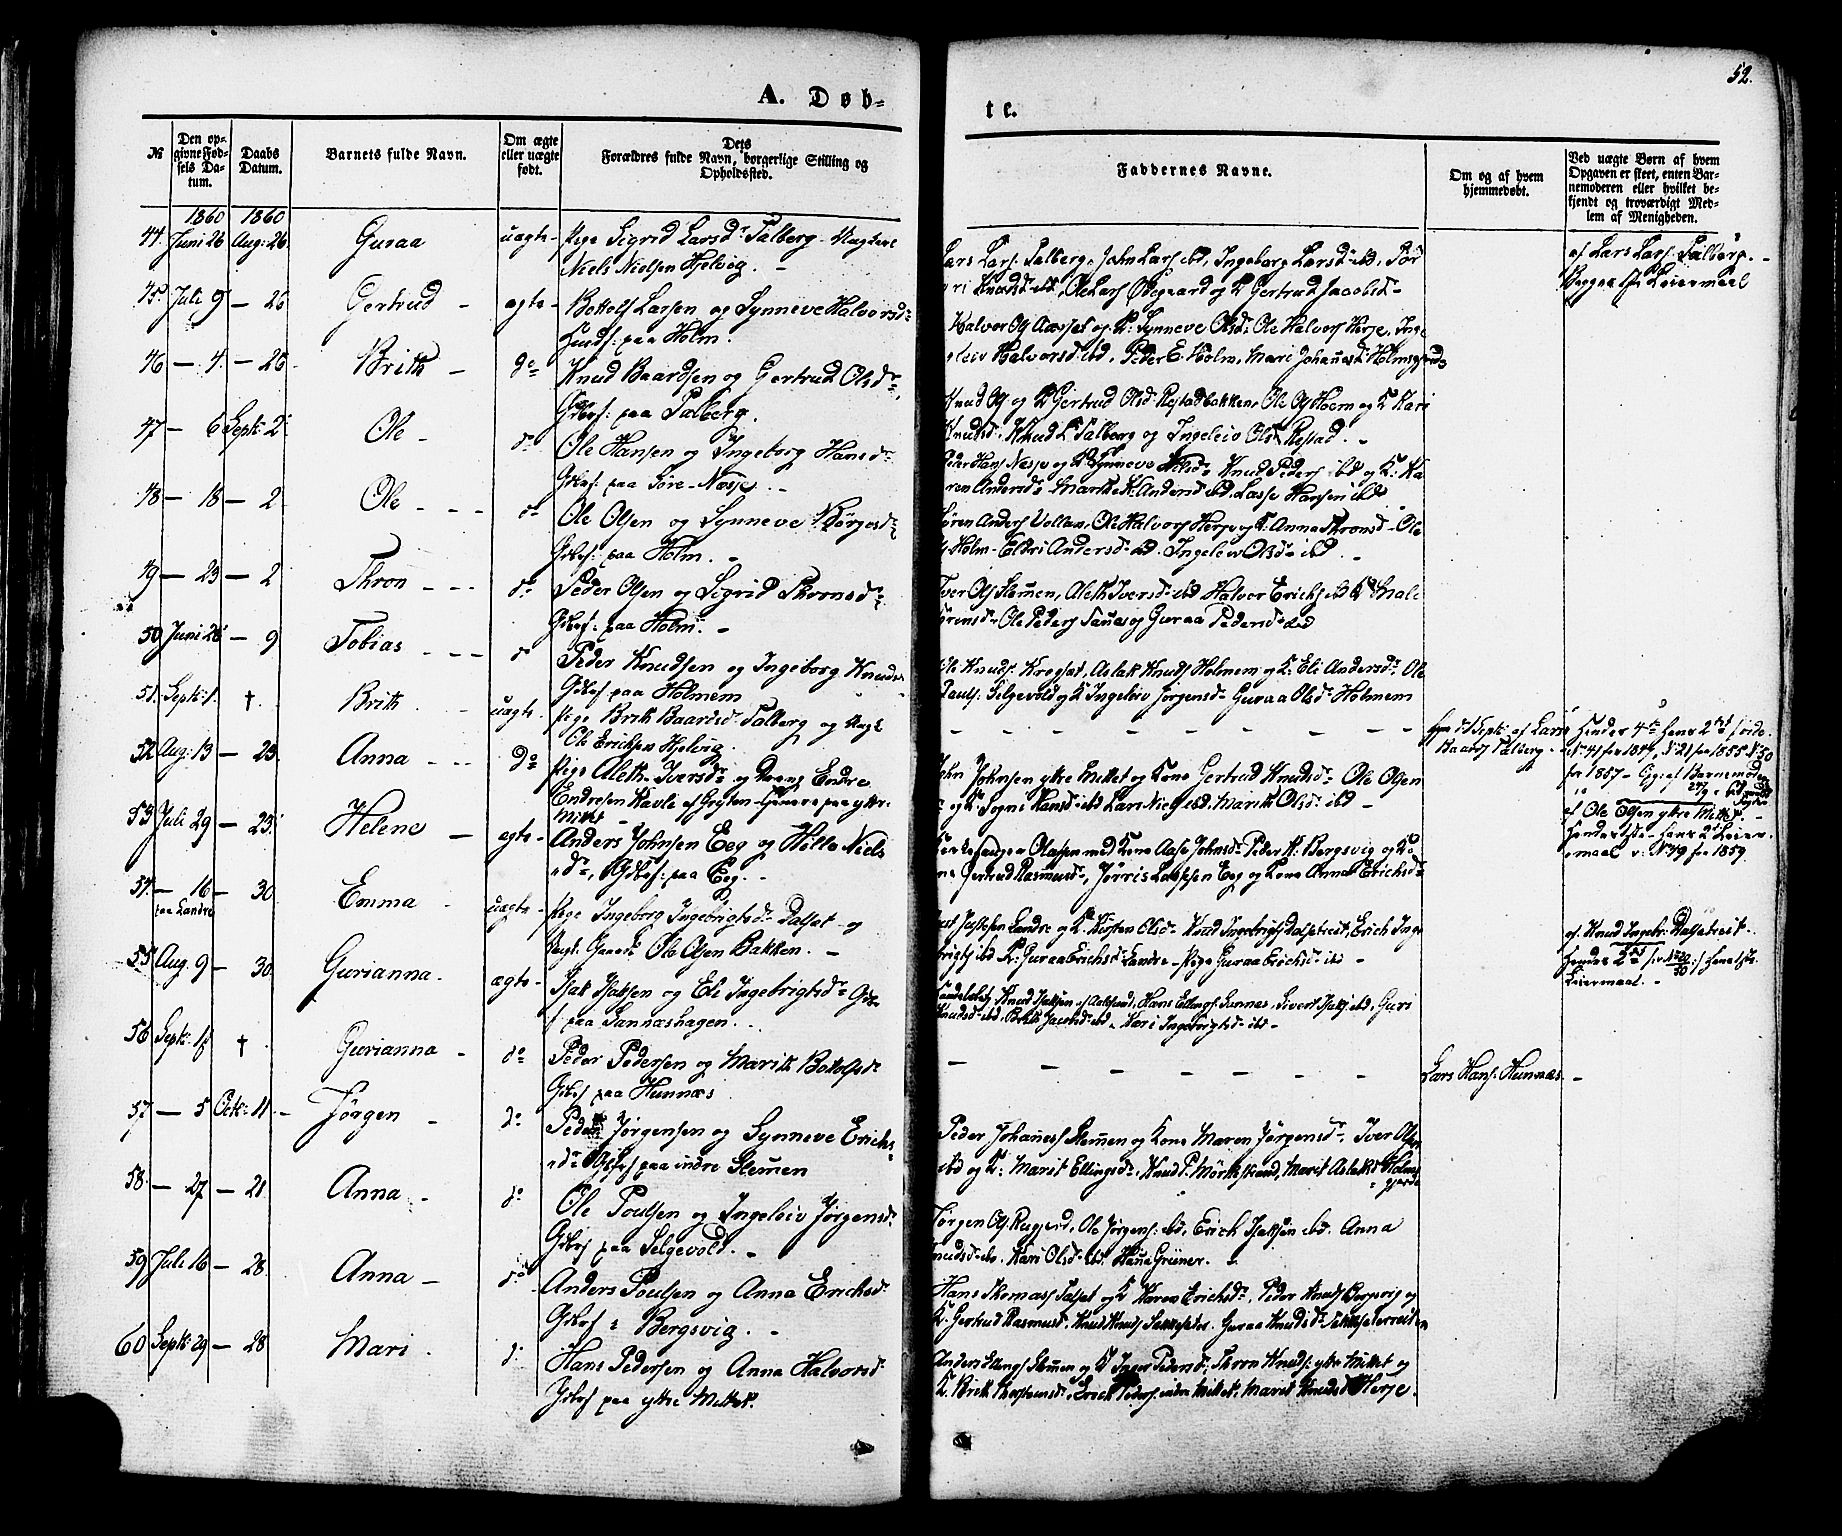 52.
A. Døb-
te.
№
Den op-
givne Fød-
sels Da-
tum.
Daabs
Datum.
Barnets fulde Navn.
Om ægte
eller uægte
født.
Dets
Forældres fulde Navn, borgerlige Stilling og
Opholdssted.
Faddernes Navne.
Om og af hvem
hjemmedøbt.
Ved uægte Børn af hvem
Opgaven er skeet, enten Bar-
nemoderen eller hvilket be-
kjendt og troværdigt Med-
lem af Menigheden.
1860 1860
44. Juni 26 Aug: 26 Guraa uægte Pige Sigrid Larsd: Talberg
Niels Nielsen Hjelvig.
Lars Lars: Talberg, John Lars: ibd, Ingeborg Larsd: ibd,
Knudsd: ibd, Ole Lars: Ødegaard og K Gertrud Jacobsd
af Lars Lars: Talberg.
45 Juli 9 — 26 Gertrud ægte Bottolf Larsen og Synneve Halvorsd:
Huusf: paa Holm.
Halvor Ols: Aasset og K: Synneve Olsd: Ole Halvors: Herje, Inge
leiv Halvorsd: ibd, Peder E. Holm, Mari Johañesd: Holmsgjerde
46 — 4. — 26 Brith do Knud Baardsen og Gertrud Olsd:
Gdbrf: paa Talberg.
Knud Ols: og K Gertrud Olsd: Restadbakken, Ole Ols: Hoem og K Kari
Knudsd: Knud L: Talberg og Ingeleiv Olsd: Restad.
47 — 6 Septb: 2 Ole do Ole Hansen og Ingeborg Hansd:
Gdbrf: paa Søre-Næsje.
Peder Hans: Nesje og K Synneve Nilsd: Knud Peders: ibd og K: Ka
ren Andersd: Marthe K: Andersd ibd, Lasse Hansen ibd
48 — 18 — 2 Ole do Ole Olsen og Synneve Børgesd:
Gdbrf: paa Holm.
Søren Anders: Vollan, Ole Halvors: Herje og K: Anna Thronsd: Ole
Holm - Eldri Andersd: ibd. Ingeleiv Olsd: ibd.
49 — 23 — 2 Thron do Peder Olsen og Sigrid Thronsd:
Gdbrf: paa Holm.
Iver Ols: Steñen, Aleth Iversd: ibd Halvor Ericks: ibd K
Ole Peders: og Guraa Pedersd: ibd
50 Juni 26 — 9 Tobias do Peder Knudsen og Ingeborg Knuds
Gdbrf paa Holmem
Ole Knuds: Krogset, Aslak Knuds: Holmem og K: Eli Andersd: Ole
Pauls: Selgevold og K Ingeleiv Jørgensd: Guraa Olsd: Holmem
51. Septb: 1. † Brith uægte Pige Brith Baardsd: Talberg og
Ole Ericksen Hjelvig.
af Lars
Baards: Talberg.
Hendes 4de hans 2det
N 41 for 1854, N 21 for 1855 N 50
for 1857
52 Aug: 13 — 23 Anna do Pige Aleth Iversd: og Endre
Endresen Havle af Grytten
Mittet
John Johnsen ytre Mittet og Kone Gertrud Knudsd: Ole Olsen
og K: Sogni Hansd: ibd Lars ibd, Marith Olsd: ibd
af Ole Olsen ytre Mittet
Hendes 1ste - hans 2d Leier-
maal v: No 49 for 1859.
53 Juli 29 — 23 Helene ægte Anders Johnsen Eeg og Hella Niels
d:, Gdbrf: paa Eeg.
Olassen med Kone Aase Johnsd: Peder K: Bergsvig og Ko
ne Gertrud Rasmusd:, Jørris Lassen Eeg og Kone Anna Ericksd:
54. — 16 — 30 Emma uægte Pige Ingeborg Ingebrigtsd: Dalset og
paa Landre
Ungk: Ole Olsen Bakken.
Landre og K Kirsten Olsd: Knud Ingebrigts: Dalsetreit, Erich Inge
brigts: ibd P: Guraa Erichsd: Landre - Pige Guraa Erichsd: ibd
af Knud Ingebr: Dalsetreit.
Hendes 2det
Leiermaal.
55 Aug 9 — 30 Gurianna ægte Isak Isaksen og Eli Ingebrigtsd: Gdbr
f paa Sannæshagen.
Knud Isaksen af Aalesund, Hans Ellings: Sannæs, Sivert Isaks: ibd, Guri
Knudsd: ibd, Brith Jacobsd: ibd, Kari Ingebrigtsd: ibd
56 Septb: † Gurianna do Peder Pedersen og Marith Bottolfsd:
Gdbrf paa Hunnæs
Lars Hans: Hunnæs
57 — 5 Octb: 11 Jørgen do Peder Jørgensen og Synneve Erichs
d: Gdbrf paa indre Steñen
Peder Johañess: Steñen og Kone Maren Jørgensd: Iver Olsen
ibd og K: Marit Ellingsd: Knud P. Mørkestrand, Marit Aslaksd: Holms
gjerde
58. — 27 — 21 Anna do Ole Poulsen og Ingeleiv Jørgensd:
Gdbrf paa Selgevold.
Jørgen Ols: Rugjerd, Ole Jørgens: ibd, Erick Isaksen ibd. Anna
Knudsd: ibd. Kari Olsd: ibd. Haña Grüner.
59 Juli 16 — 28 Anna do Anders Poulsen og Anna Ericksd:
Gdbrf Bergsvig.
Hans Thomass: Talset og K Karen Erichsd:, Peder Knuds: Bergsvig og
K. Gertrud Rasmusd: Knud Knuds: Guraa Knudsd:
60 Septb: 29 — 28 Mari do Hans Pedersen og Anna Halvorsd:
Gdbrf paa ytre Mittet.
Anders Ellings: Steñen og K Inger Pedersd: Thron Knuds: ytre Mittet og
K. Brith Thorstensd: Erick Peders: indre Mittet: Marit Knudsd: Herje.